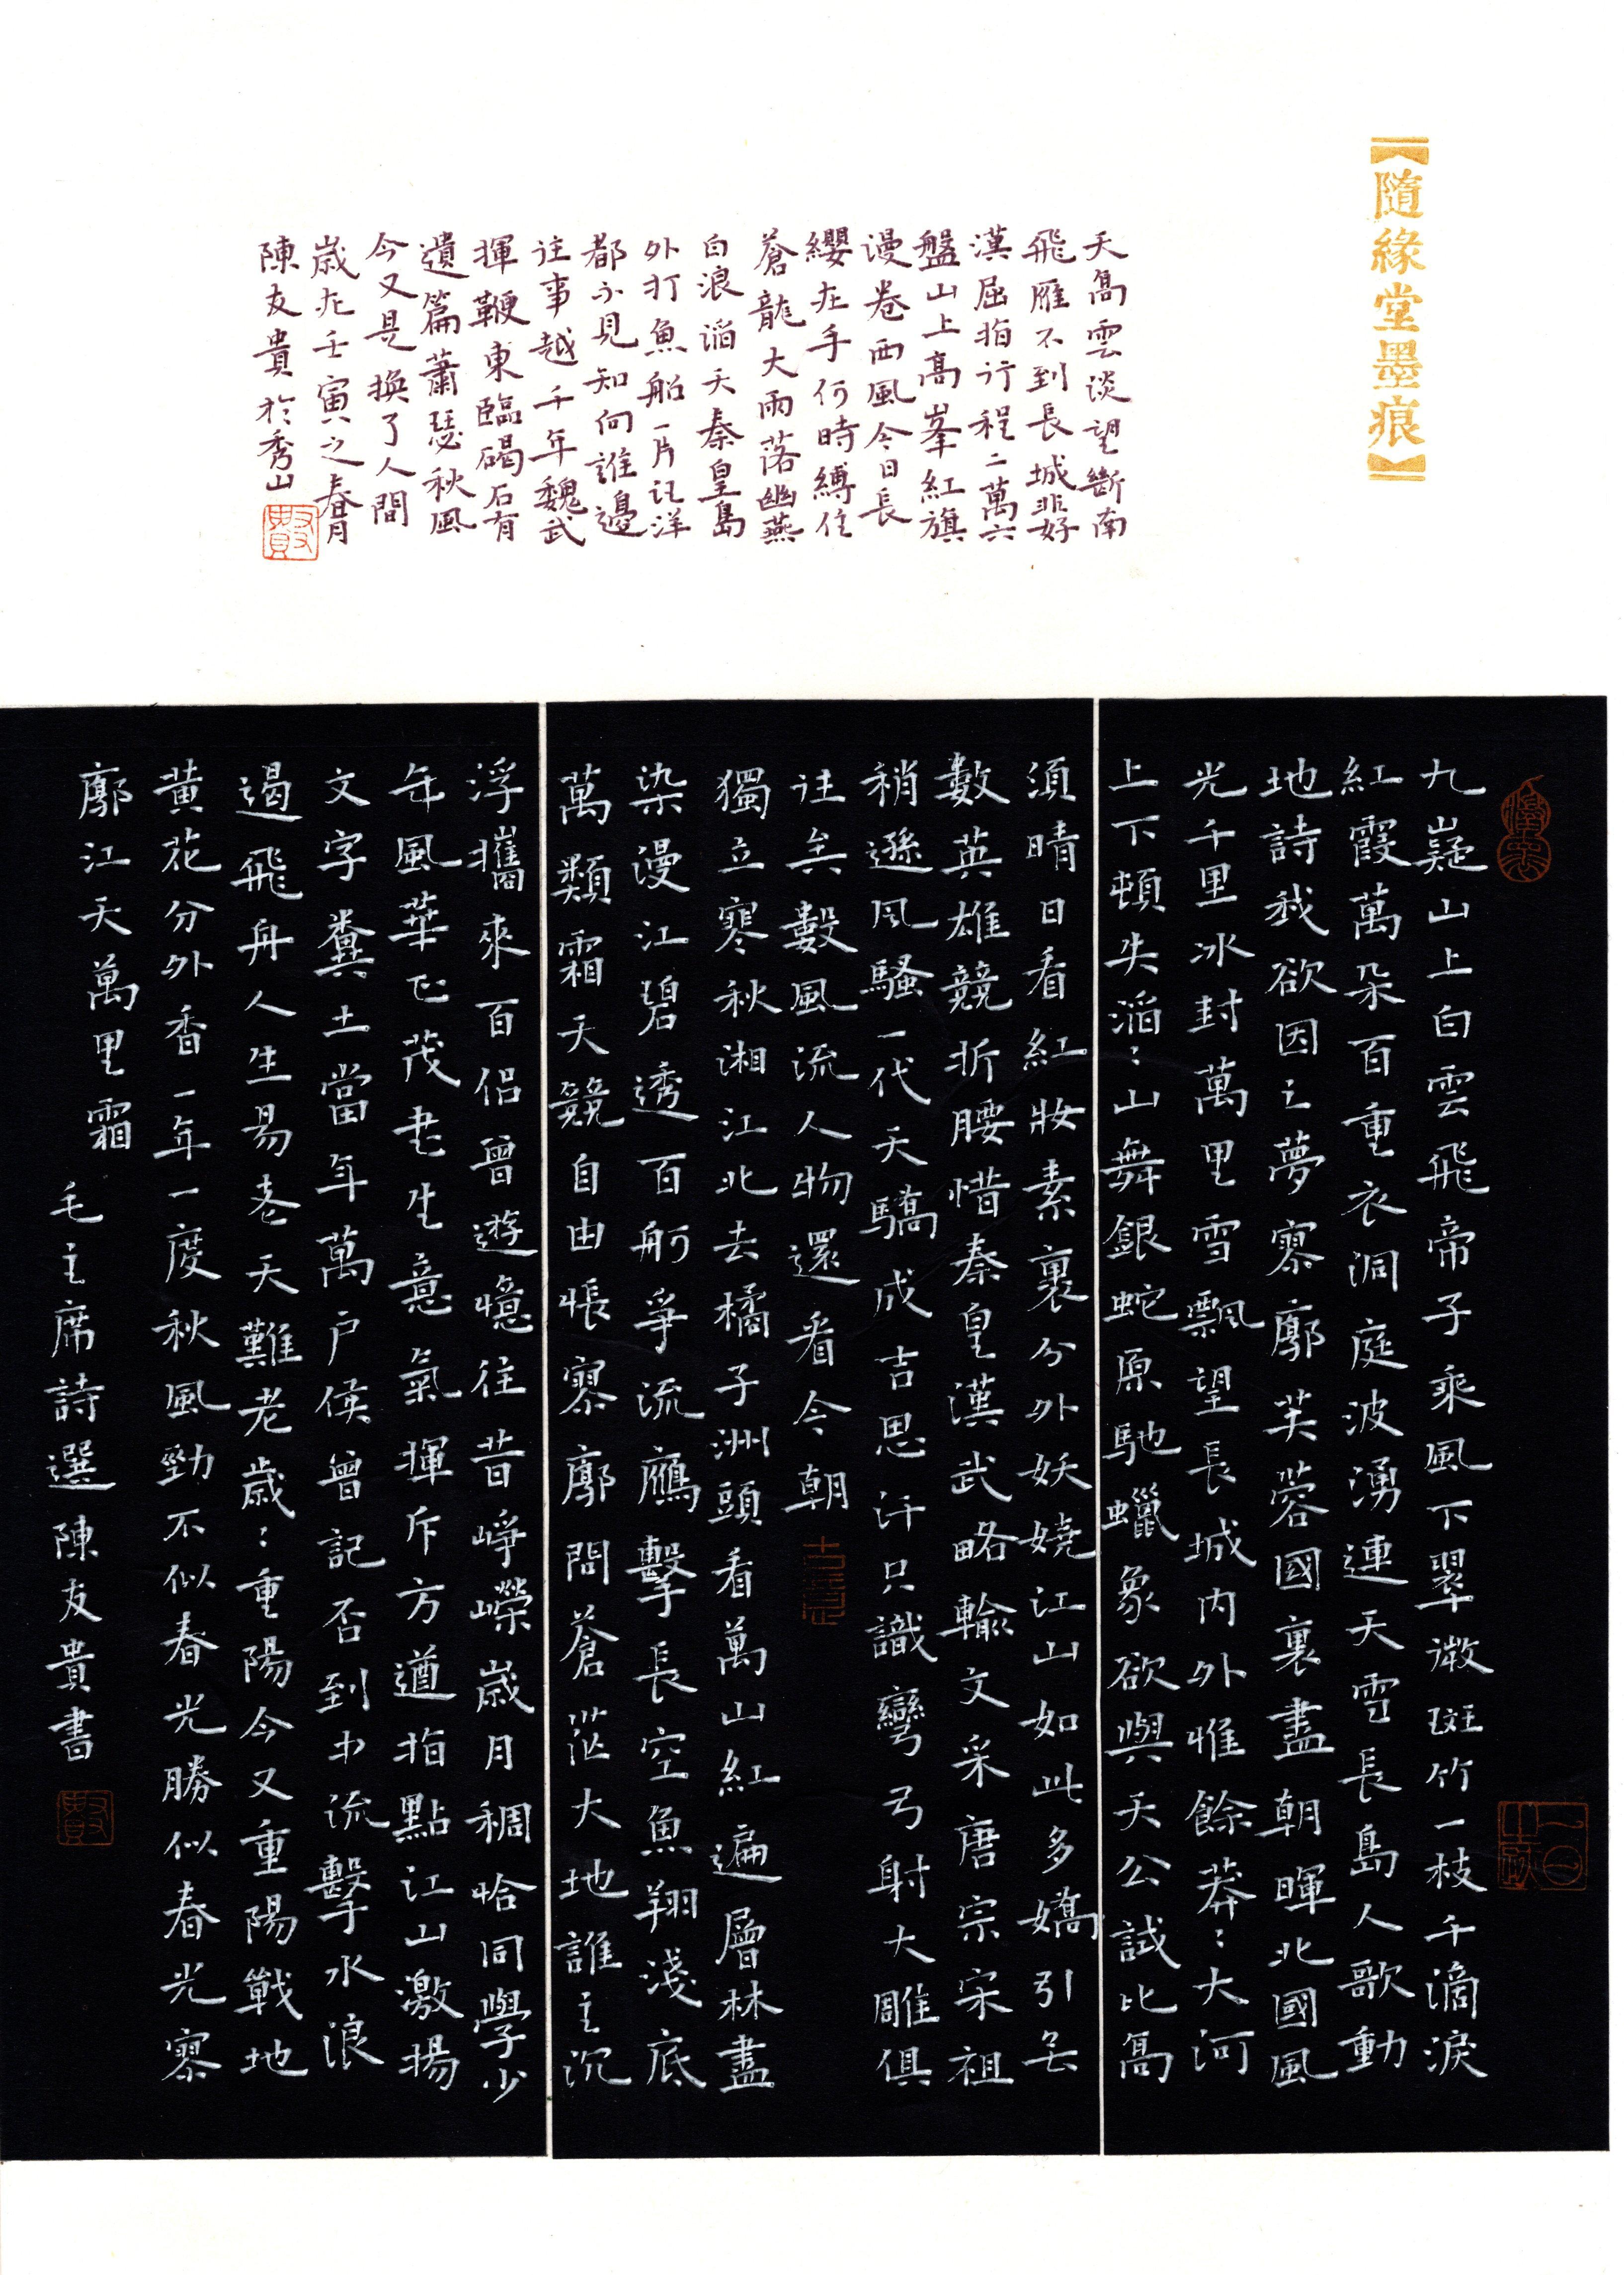 【隨緣堂墨痕】
天高雲淡望斷南
飛雁不到長城非好
漢屈指行程二萬六
盤山上高峯紅旗
漫卷西風今日長
纓在手何時縛住
蒼龍大雨落幽燕
白浪滔天秦皇島
外打魚船一片汪洋
都不見知向誰邊
往事越千年魏武
揮鞭東臨碣石有
遺篇蕭瑟秋風
今又是換了人間
歲在壬寅之春月
陳友貴於秀山
九嶷山上白雲飛帝子乘風下翠微斑竹一枝千滴淚
紅霞萬朵百重衣洞庭波湧連天雪長島人歌動
地詩我欲因之夢寥廓芙蓉國裏盡朝暉北國風
光千里冰封萬里雪飄望長城內外惟餘莽〻大河
上下頓失滔〻山舞銀蛇原馳蠟象欲與天公試比高
須晴日看紅妝素裹分外妖嬈江山如此多嬌引無
數英雄競折腰惜秦皇漢武略輸文采唐宗宋祖
稍遜風騷一代天驕成吉思汗只識彎弓射大雕俱
往矣數風流人物還看今朝
獨立寒秋湘江北去橘子洲頭看萬山紅遍層林盡
染漫江碧透百舸爭流鷹擊長空魚翔淺底
萬類霜天競自由悵寥廓問蒼茫大地誰主沉
浮攜來百侶曾遊憶往昔崢嶸歲月稠恰同學少
年風華正茂書生意氣揮斥方遒指點江山激揚
文字糞土當年萬戶侯曾記否到中流擊水浪
遏飛舟人生易老天難老歲〻重陽今又重陽戰地
黃花分外香一年一度秋風勁不似春光勝似春光寥
廓江天萬里霜
毛主席詩選陳友貴書